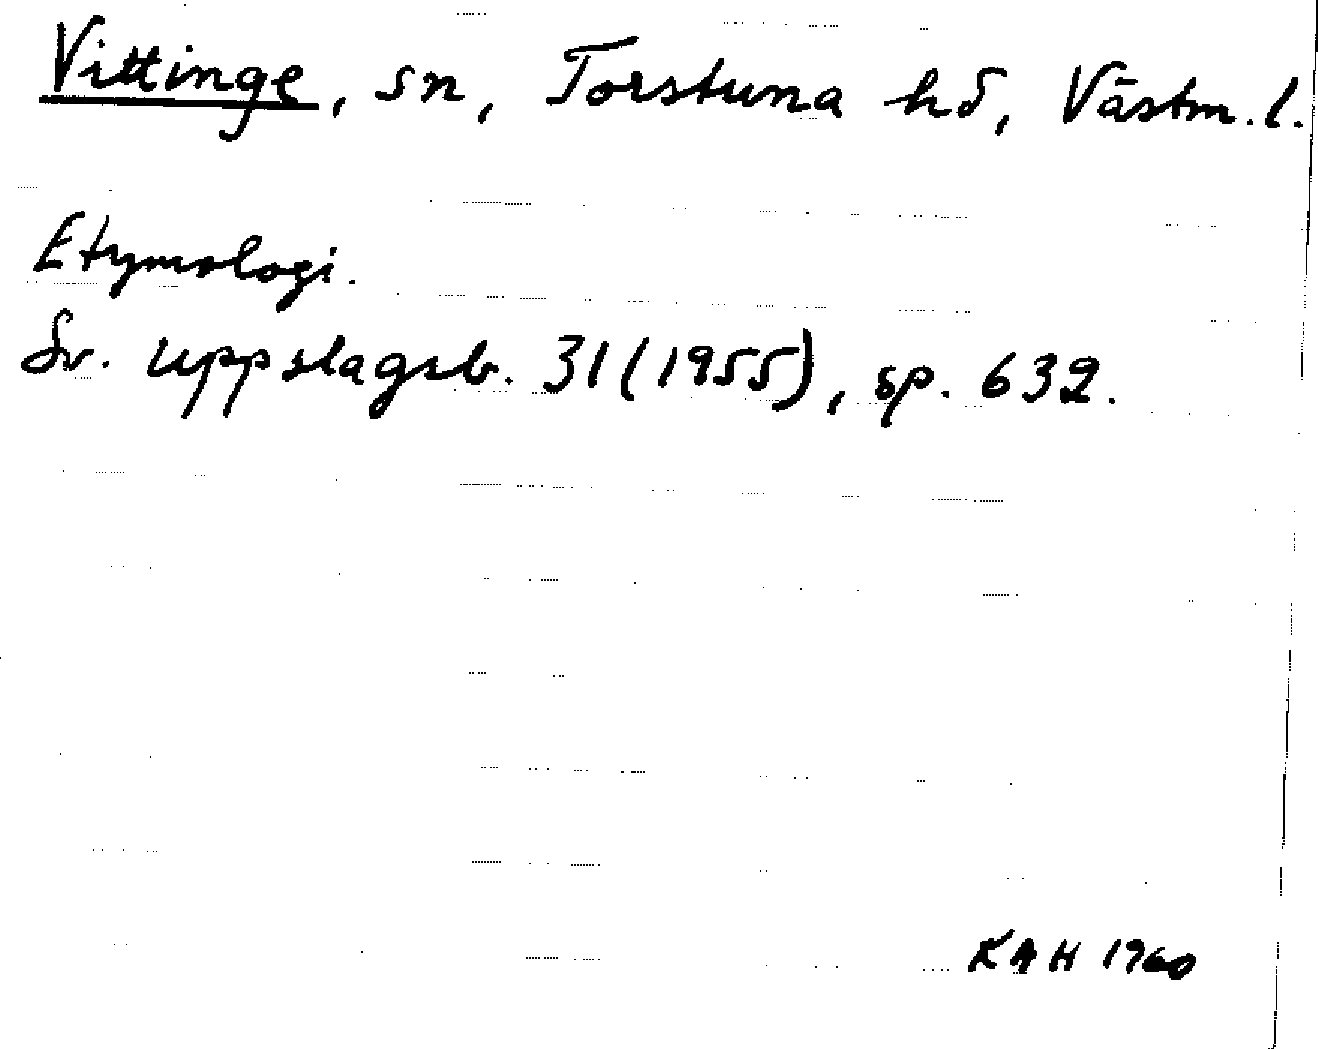 Vittinge, sn, Torstuna hd, Västm. l.
Etymologi.
Sv. uppslagsb. 31 (1955), sp. 632.
KAH 1960